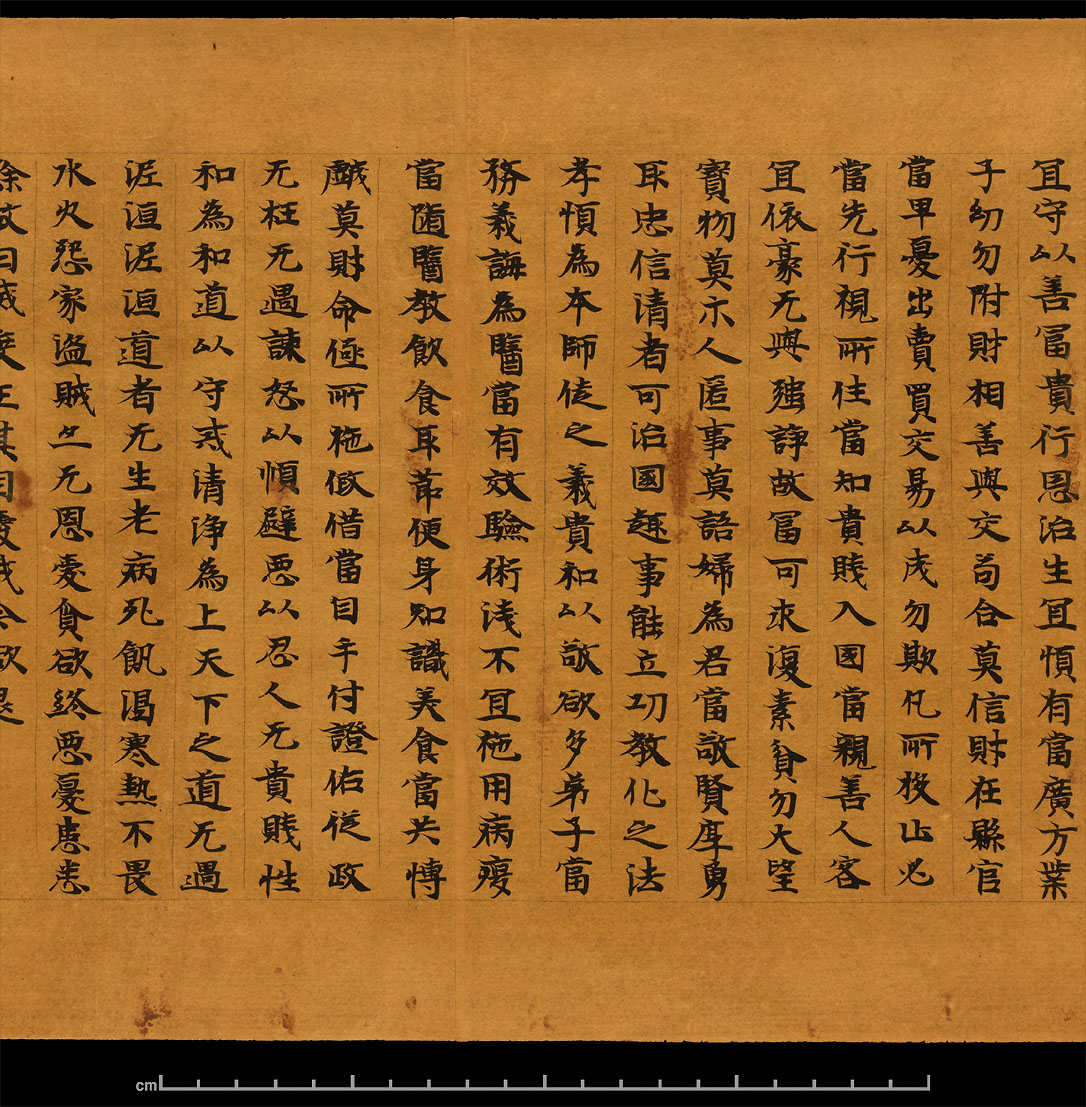 冝守以善冨貴行恩治生冝慎有當廣方業
子幼勿附財相善與交苟合莫信財在縣官
當早憂出賣買交易以成勿欺凡所投止必
當先行視所住當知貴賤入國當親善人客
冝依豪无與強諍故冨可求復素貧勿大望
寶物莫示人匿事莫語婦為君當敬賢厚勇
取忠信清者可治國趣事能立功教化之法
孝慎為本師徒之義貴和以敬欲多弟子當
務義誨為醫當有效驗術淺不冝施用病瘦
當隨醫教飲食取節便身知識美食當共博
戲莫財命極所施假借當自手付證佑從政
无枉无過諫怒以慎避惡以忍人无貴賤性
和為和道以守戒清淨為上天下之道无過
泥洹泥洹道者无生老病死飢渴寒熱不畏
水火怨家盜賊亦无恩愛貪欲終惡憂患悉
除故曰滅度王其自愛我今欲退